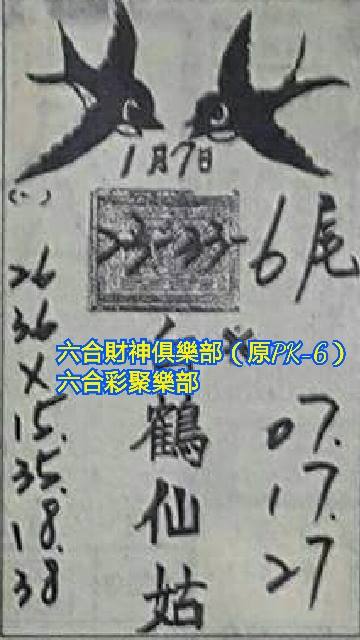 1月7日
(一)
23-33-
6尾
26
36
X
15.
35.
18.
38
六合財神俱樂部（原PK-6）
六合彩聚樂部
鶴仙姑
07.
17.
27